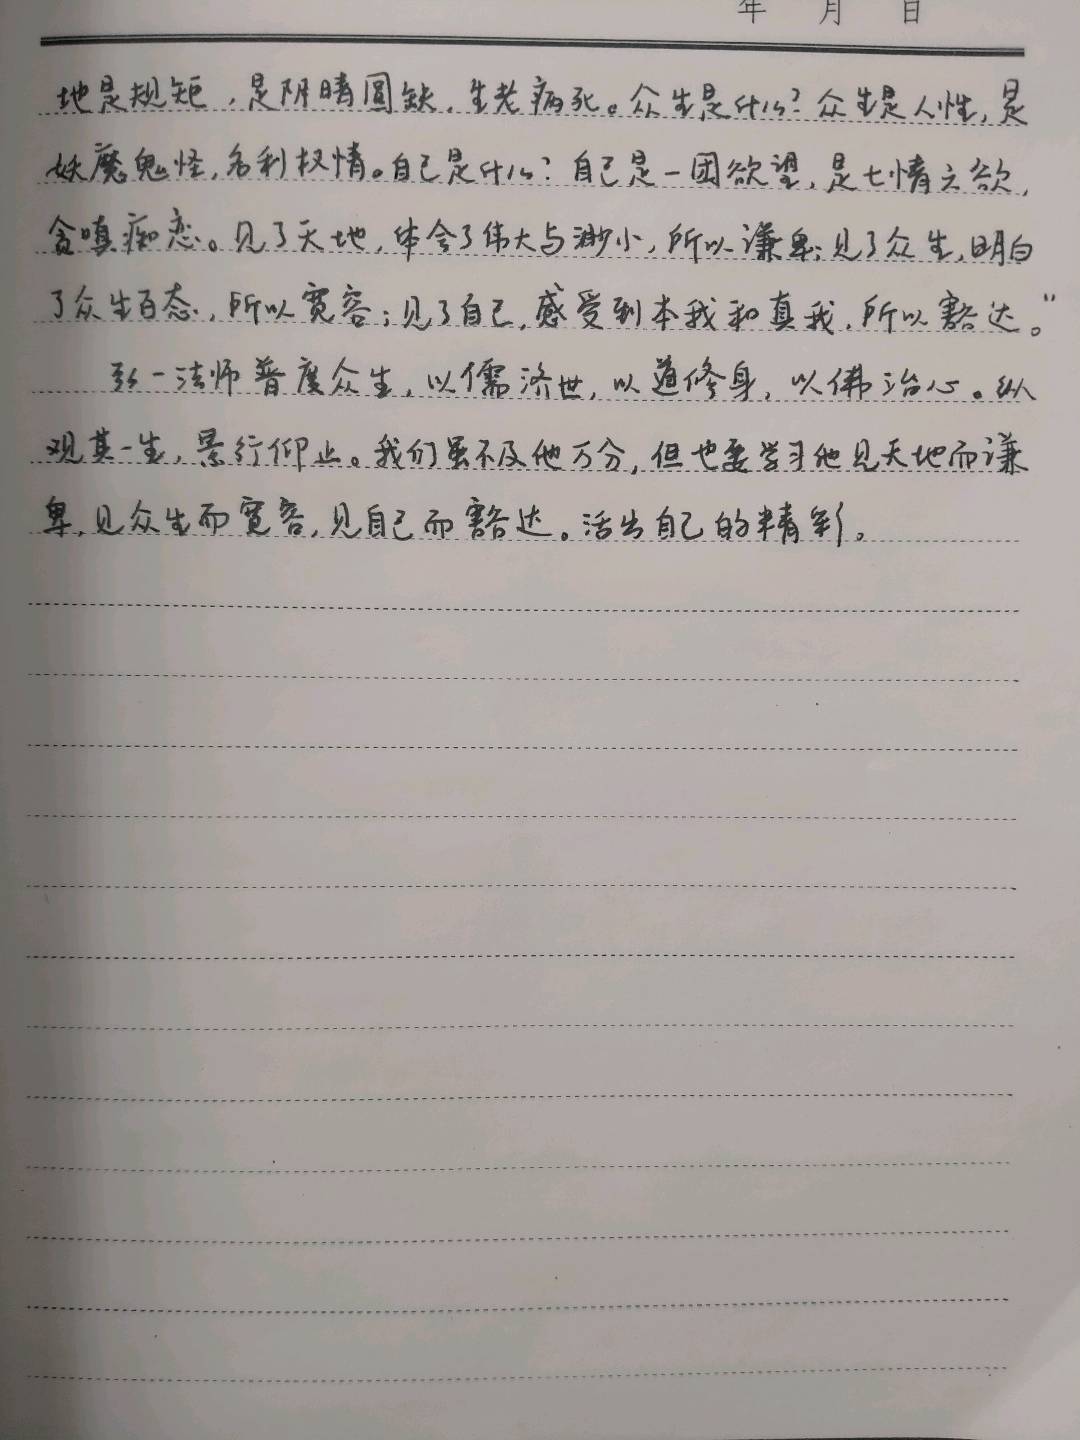 年 月 日
地是规矩，是阴晴圆缺，生老病死。众生是什么？众生是人性，是
妖魔鬼怪，名利权情。自己是什么？自己是一团欲望，是七情六欲，
贪嗔痴恋。见了天地，体会了伟大与渺小，所以谦卑；见了众生，明白
了众生百态，所以宽容；见了自己，感受到本我和真我，所以豁达。”
弘一法师普度众生，以儒济世，以道修身，以佛治心。纵
观其一生，景行仰止。我们虽不及他万分，但也要学习他见天地而谦
卑，见众生而宽容，见自己而豁达。活出自己的精彩。